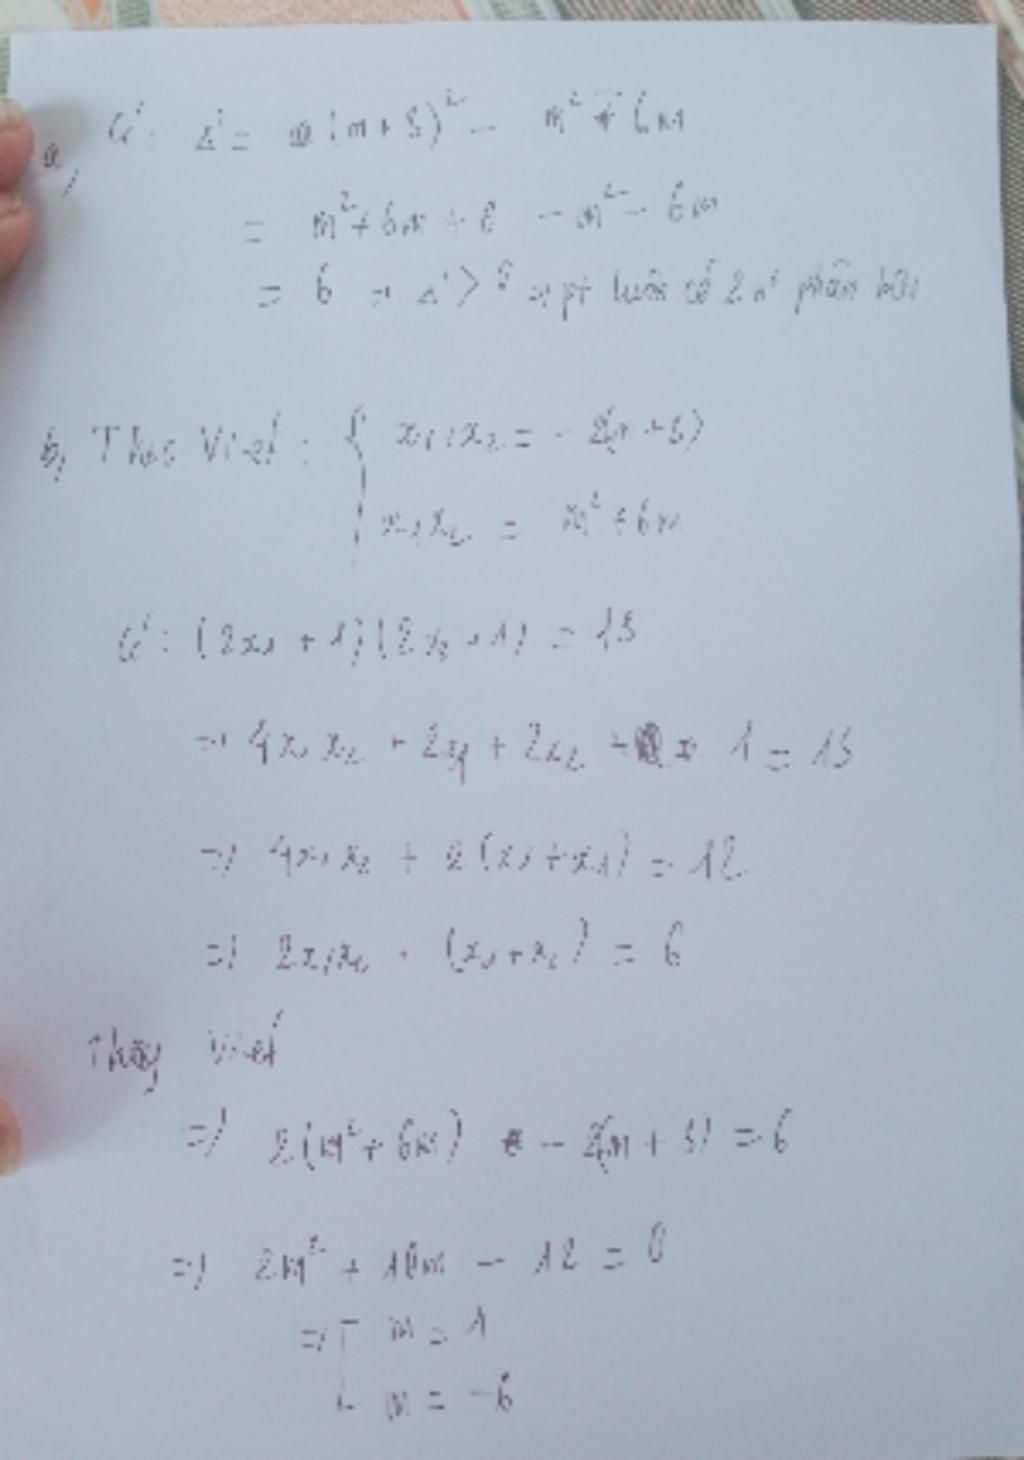 a, Có: Δ' = (m+3)² - m² + 6m
= m² + 6m + 6 - m² - 6m
= 6 → Δ' > 0 → pt luôn có 2 n⁰ phân biệt
b, Theo Viet: { x₁+x₂ = -2(m+3)
x₁x₂ = m² + 6m
Có: (2x₁ + 1)(2x₂ + 1) = 13
=> 4x₁x₂ + 2x₁ + 2x₂ + 1 = 13
=> 4x₁x₂ + 2(x₁+x₁) = 12
=> 2x₁x₂ + (x₁+x₂) = 6
Thay Viét
=> 2(m² + 6m) - 2(m + 3) = 6
=> 2m² + 10m - 12 = 0
=> [ m = 1
m = -6